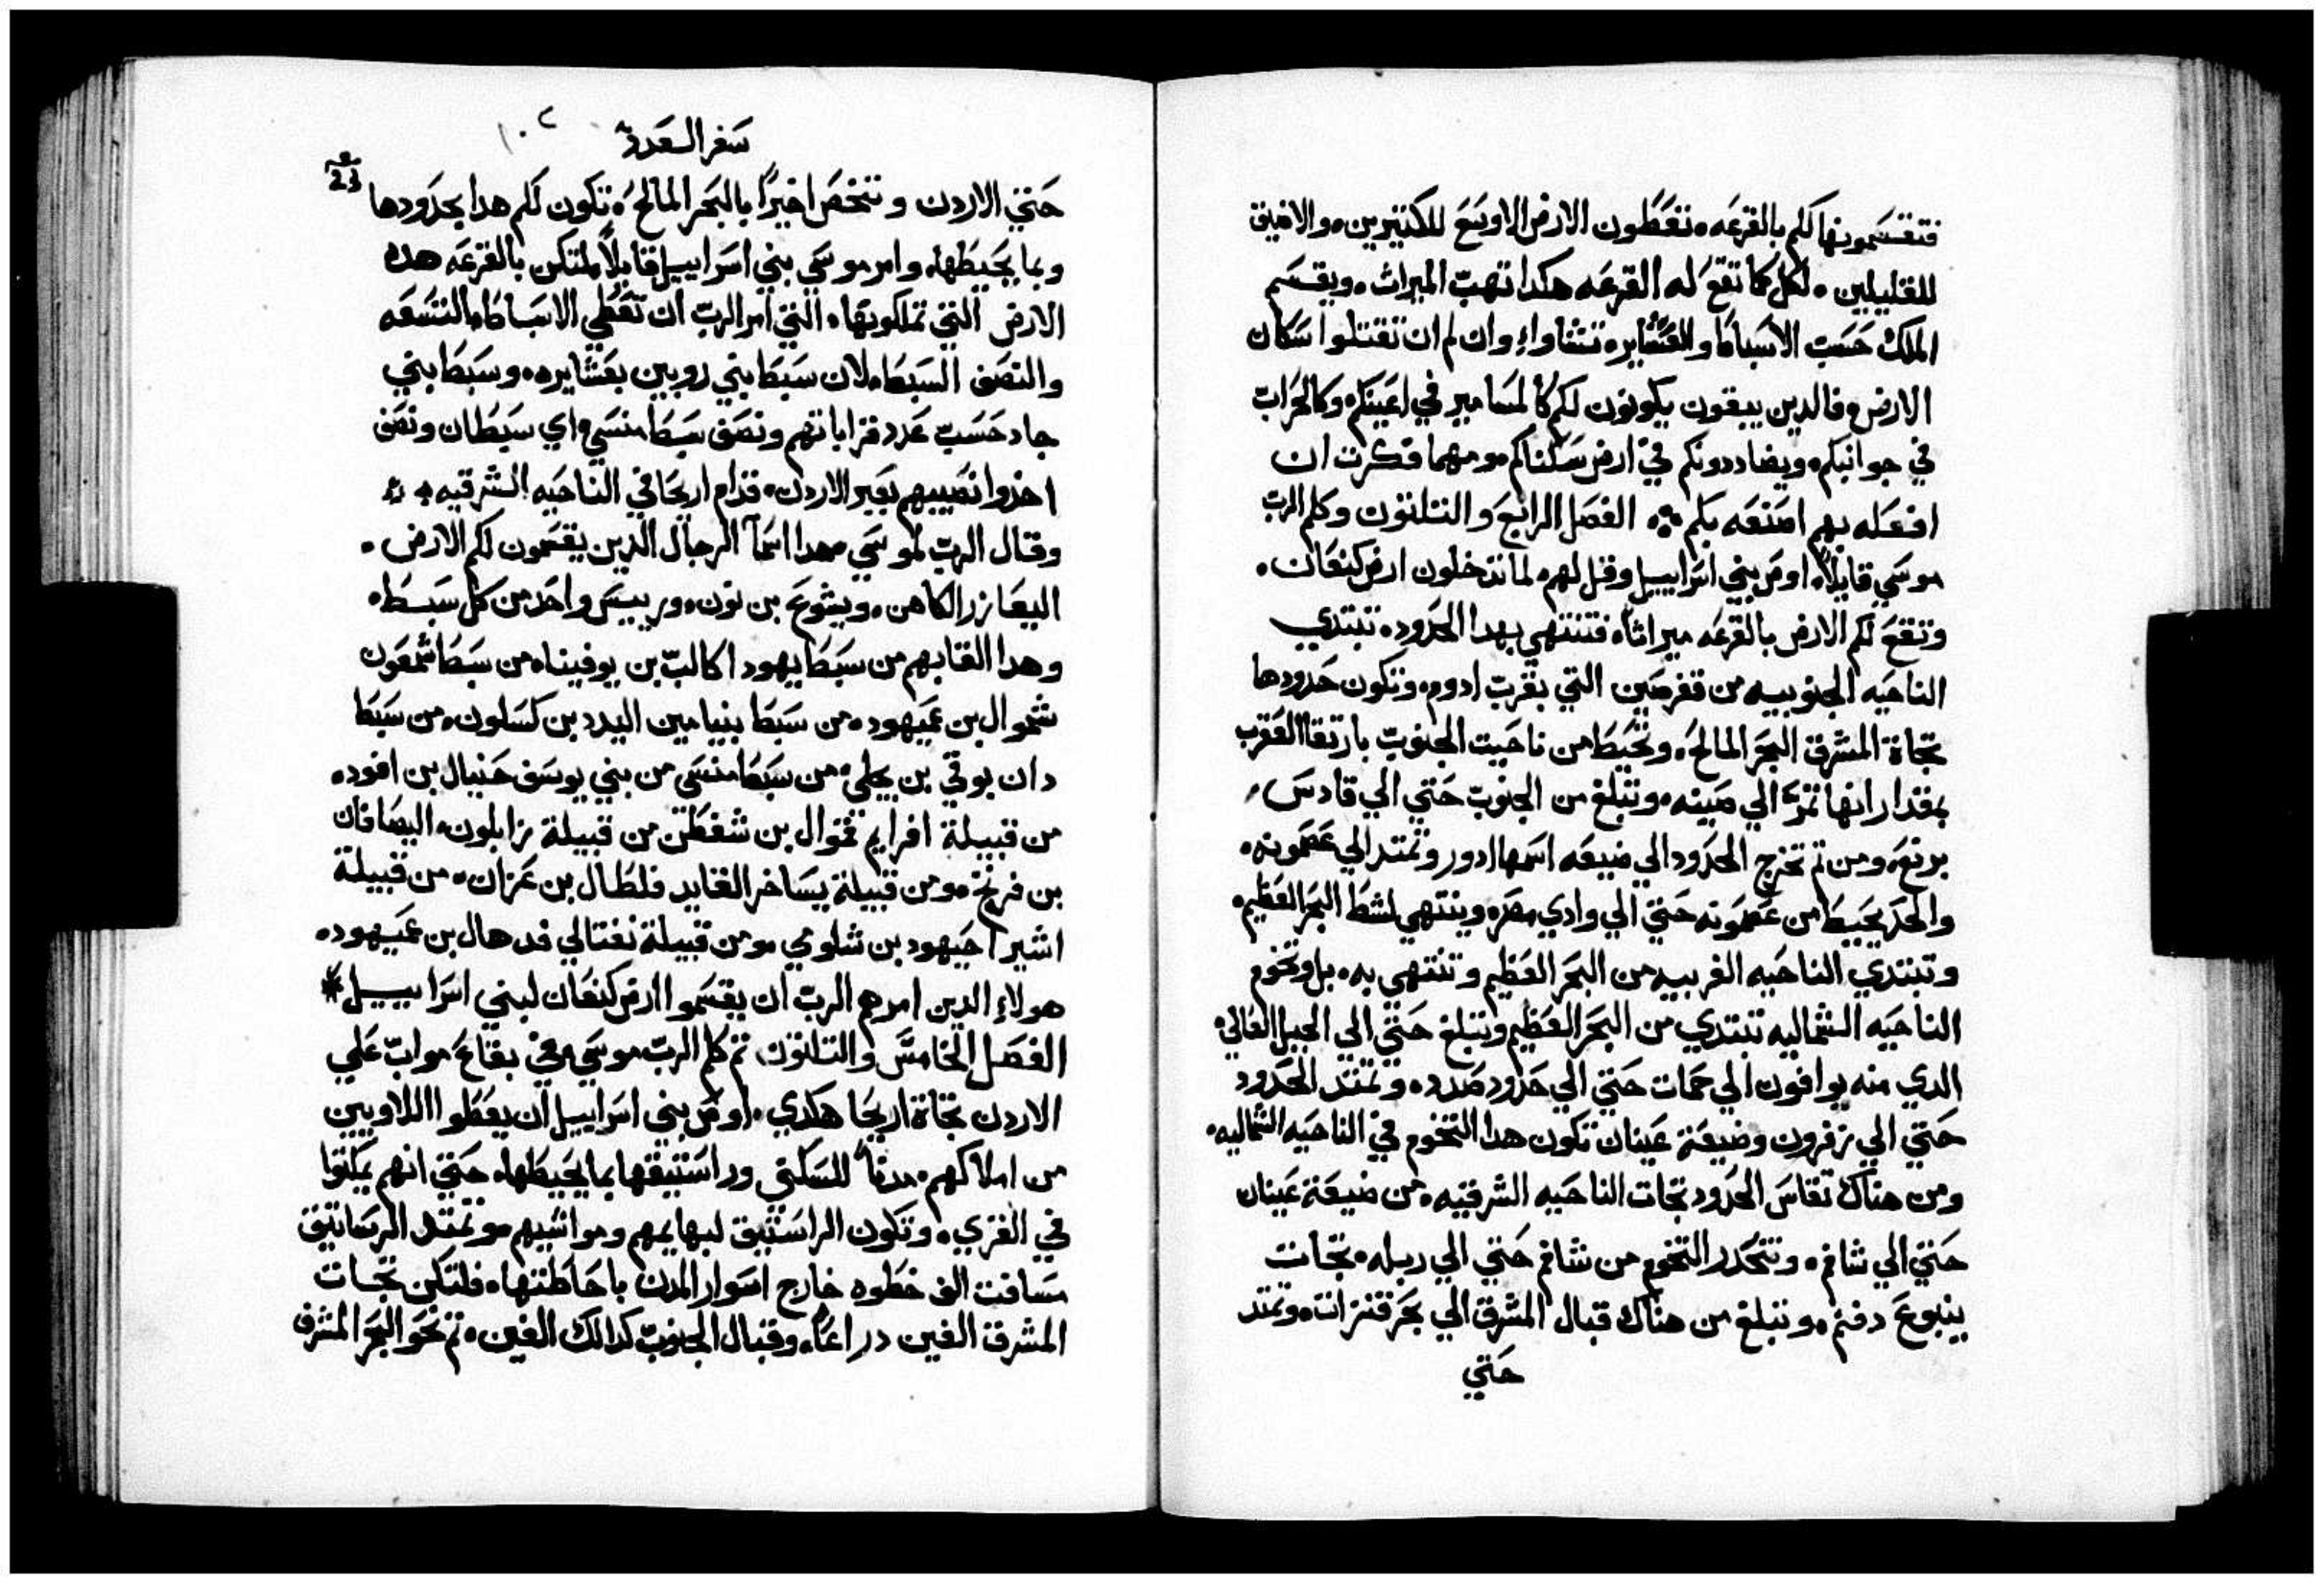 فتقتسمونها لكم بالقرعه. تعطون الارض الاوسع للكتيرين. والاضيق
للقليلين. لكل كما تقع له القرعه هكدا تهب الميرات. ويقسم
الملك حسب الاسباط والعشاير. تشاواء وان لم ان تقتلوا سكان
الارض. فالدين يبقون يكونون لكم كالمسامير في اعينكم. وكالحراب
في جوانبكم. ويضاددونكم في ارض سكناكم. ومهما فكرت ان
افعله بهم اصنعه بكم. الفصل الرابع والتلتون وكلم الرب
موسي قايلاً. اوص بني اسراييل وقل لهم. لما تدخلون ارض كنعان.
وتقع لكم الارض بالقرعه ميراتاً. فتنتهي بهدا الحدود. تبتدي
الناحيه الجنوبيه من قفر صين التي بقرب ادوم. وتكون حدودها
تجاة المشرق البحر المالح. وتحيط من ناحيت الجنوب بارتقا العقرب
بمقدار انها تمر الي صينه. وتبلغ من الجنوب حتي الي قادس
برنع. ومن تم تخرج الحدود الي ضيعه اسمها ادور وتمتد الي عصمونه.
والحد يحيط من عصمونه حتي الي وادي مصر. وينتهي لشط البحر العظيم.
وتبتدي الناحيه الغربيه من البحر العظيم وتنتهي به. بل وتخوم
الناحيه الشماليه تبتدي من البحر العظيم وتبلغ حتي الي الجبل العالي.
الدي منه يوافون الي حمات حتي الي حدود صدد. وتمتد الحدود
حتي الي زفرون وضيعة عينان تكون هدا التخوم في الناحيه الشماليه.
ومن هناك تقاس الحدود تجات الناحيه الشرقيه. من ضيعة عينان
حتي الي شافم. وتتحدر التخوم من شافم حتي الي ربله. تجات
ينبوع دفنم. وتبلغ من هناك قبال المشرق الي بحر قنرات. وتمتد
حتي
سفر العدد ١٠٢
23
حتي الاردن وتتخص اخيراً بالبحر المالح. تكون لكم هدا بحدودها
وبما يحيطها. وامر موسي بني اسراييل قايلاً. لتكن بالقرعه هده
الارض التي تملكونها. التي امر الرب ان تعطي الاسباط التسعه
والنصف السبط. لان سبط بني روبين بعشايره. وسبط بني
جاد حسب عدد قراباتهم ونصف سبط منسي. اي سبطان ونصف
اخدوا نصيبهم بعبر الاردن. قدام اريحا في الناحيه الشرقيه
وقال الرب لموسي. هدا اسما الرجال الدين يقسمون لكم الارض.
اليعازر الكاهن. ويشوع بن نون. ورييس واحد من كل سبط.
وهدا القابهم من سبط يهودا كالب بن يوفينا. من سبط شمعون
شموال بن عميهود. من سبط بنيامين اليدد بن كسلون. من سبط
دان بوقي بن يجلي. من سبط منسي من بني يوسف حنيال بن افود.
من قبيلة افرايم قموال بن شفطن من قبيلة زابلون. اليصافان
بن فرنخ. ومن قبيلة يساخر القايد فلطال بن عزان. من قبيلة
اشير احيهود بن شلومي. ومن قبيلة نفتالي فدهال بن عميهود.
هولاء الدين امرهم الرب ان يقسموا ارض كنعان لبني اسراييل*
الفصل الخامس والتلتون. تم كلم الرب موسي. في بقاع مواب علي
الاردن تجاة اريحا هكدي. اوص بني اسراييل ان يعطوا اللاويين
من املاكهم. مدناً للسكني ورساتيقها بما يحيطها. حتي انهم يمكتوا
في القري. وتكون الرساتيق لبهايمهم ومواشيهم. وتمتد الرساتيق
مسافت الف خطوه خارج اسوار المدن باحاطتها. فلتكن تجات
المشرق الفين دراعاً. وقبال الجنوب كدالك الفين. تم نحو البحر المشرف